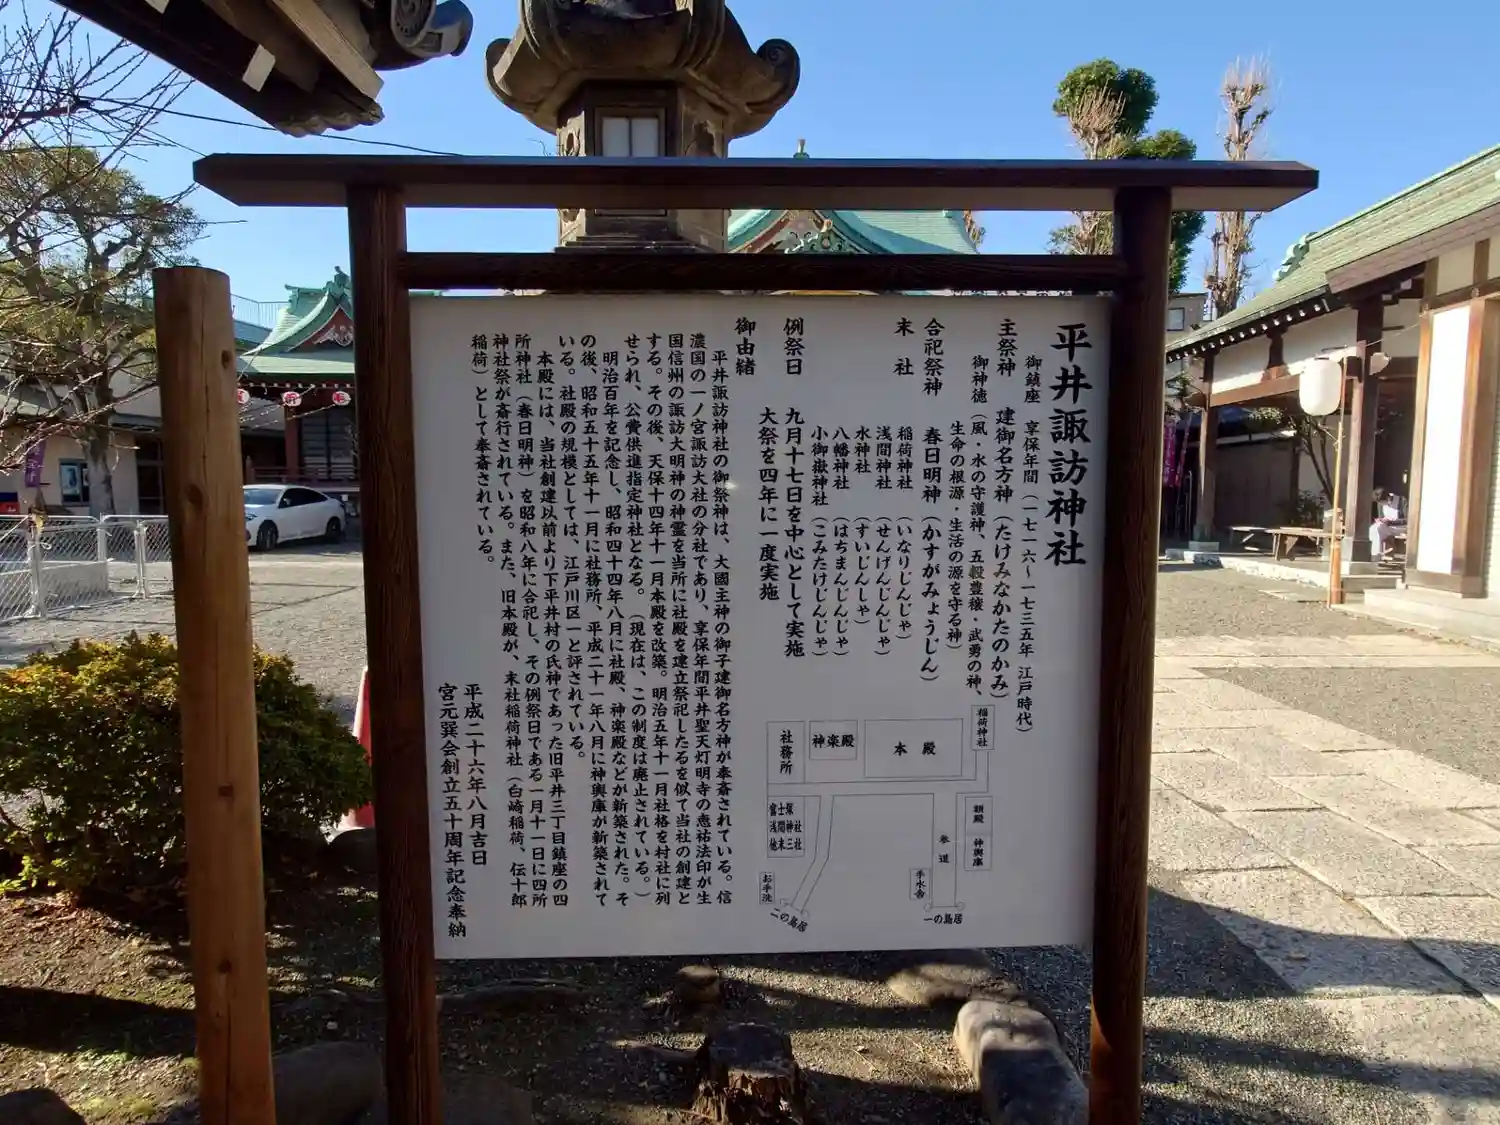 平井諏訪神社
御鎮座 享保年間(一七一六～一七三五年 江戸時代)
主祭神 建御名方神(たけみなかたのかみ)
御神徳(風・水の守護神、五穀豊穣・武勇の神、
生命の根源・生活の源を守る神)
合祀祭神 春日明神(かすがみょうじん)
末社 稲荷神社(いなりじんじゃ)
浅間神社(せんげんじんじゃ)
水神社(すいじんしゃ)
八幡神社(はちまんじんじゃ)
小御嶽神社(こみたけじんじゃ)
例祭日 九月十七日を中心として実施
大祭を四年に一度実施
御由緒
平井諏訪神社の御祭神は、大國主神の御子建御名方神が奉斎されている。信
濃国の一ノ宮諏訪大社の分社であり、享保年間平井聖天灯明寺の恵祐法印が生
国信州の諏訪大明神の神霊を当所に社殿を建立祭祀したるを似て当社の創建と
する。その後、天保十四年十一月本殿を改築。明治五年十一月社格を村社に列
せられ、公費供進指定神社となる。(現在は、この制度は廃止されている。)
明治百年を記念し、昭和四十四年八月に社殿、神楽殿などが新築された。そ
の後、昭和五十五年十一月に社務所、平成二十一年八月に神輿庫が新築されて
いる。社殿の規模としては、江戸川区一と評されている。
本殿には、当社創建以前より下平井村の氏神であった旧平井三丁目鎮座の四
所神社(春日明神)を昭和八年に合祀し、その例祭日である一月十一日に四所
神社祭が斎行されている。また、旧本殿が、末社稲荷神社(白崎稲荷、伝十郎
稲荷)として奉斎されている。
平成二十六年八月吉日
宮元巽会創立五十周年記念奉納
稲荷神社
本殿
神楽殿
社務所
富士塚
浅間神社
他末三社
額殿 神輿庫
参道
手水舎
一の鳥居
お手洗
二の鳥居